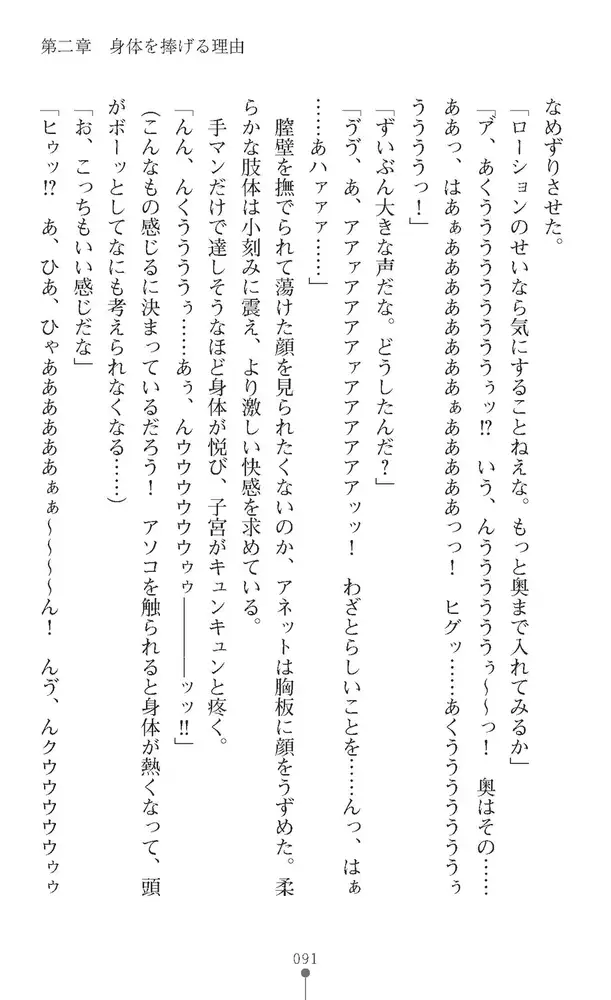 第二章　身体を捧げる理由
なめずりさせた。
「ローションのせいなら気にすることねえな。もっと奥まで入れてみるか」
「ア゛、あくううううううううぅッ!?　いう、んうううううぅ～～っ！　奥はその……
ああっ、はあぁああああああああぁああああっっ！　ヒグッ……あくうううううううぅ
うううっ！」
「ずいぶん大きな声だな。どうしたんだ？」
「ゔゔ、あ、アアァアアアアァアアアアアアッッ！　わざとらしいことを……んっ、はぁ
……あハァァァ……」
　膣壁を撫でられて蕩けた顔を見られたくないのか、アネットは胸板に顔をうずめた。柔
らかな肢体は小刻みに震え、より激しい快感を求めている。
　手マンだけで達しそうなほど身体が悦び、子宮がキュンキュンと疼く。
「んん、んくうううぅ……あぅ、んウウウウウウゥゥ―――ッッ!!」
（こんなもの感じるに決まっているだろう！　アソコを触られると身体が熱くなって、頭
がボーッとしてなにも考えられなくなる……）
「お、こっちもいい感じだな」
「ヒゥッ!?　あ、ひあ、ひゃああああああぁぁ～～～～ん！　んゔ、んクウウウウウゥゥ
091